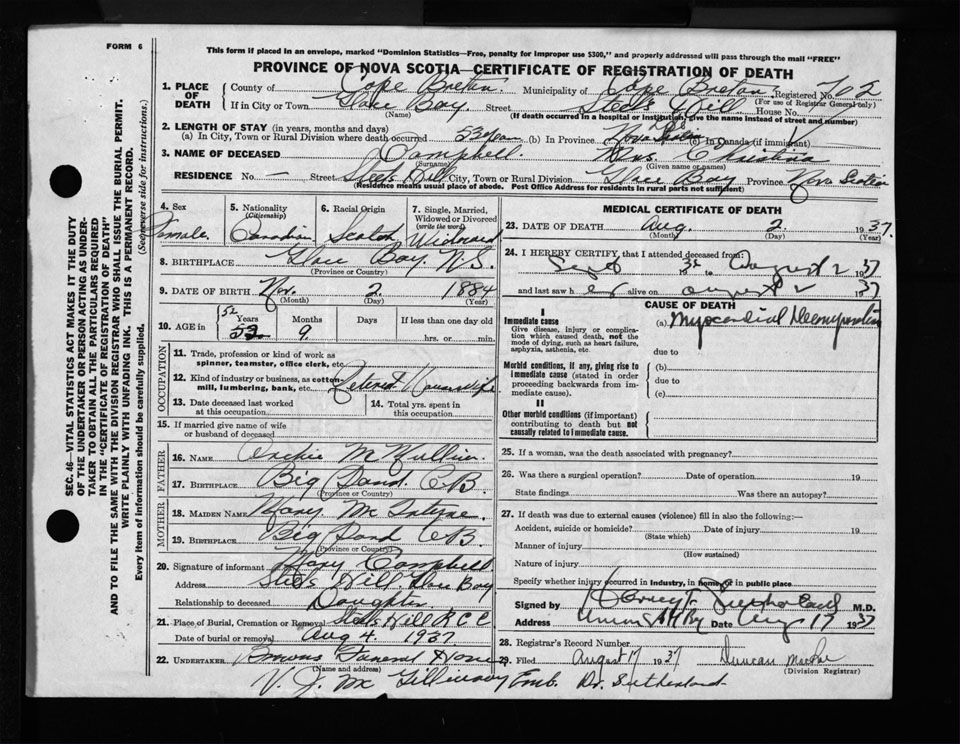 FORM 6
This form if placed in an envelope, marked "Dominion Statistics—Free, penalty for improper use $300," and properly addressed will pass through the mail "FREE"
PROVINCE OF NOVA SCOTIA—CERTIFICATE OF REGISTRATION OF DEATH
1. PLACE OF DEATH
County of Cape Breton Municipality of Cape Breton Registered No. 62
(For use of Registrar General only)
If in City or Town Glace Bay Street Steels Hill House No.
(Name) (If death occurred in a hospital or institution, give the name instead of street and number)
2. LENGTH OF STAY (in years, months and days)
(a) In City, Town or Rural Division where death occurred 53 years (b) In Province Nova Scotia (c) In Canada (if immigrant)
3. NAME OF DECEASED Campbell. Mrs. Christina
(Surname) (Given name or names)
RESIDENCE No. — Street Steels Hill City, Town or Rural Division Glace Bay Province Nova Scotia
(Residence means usual place of abode. Post Office Address for residents in rural parts not sufficient)
4. Sex Female
5. Nationality (Citizenship) Canadian
6. Racial Origin Scotch
7. Single, Married, Widowed or Divorced (write the word) Widowed
8. BIRTHPLACE Glace Bay N.S.
(Province or Country)
9. DATE OF BIRTH Nov. 2. 1884
(Month) (Day) (Year)
10. AGE in Years 52 Months 9 Days If less than one day old
hrs. or min.
OCCUPATION
11. Trade, profession or kind of work as spinner, teamster, office clerk, etc.
12. Kind of industry or business, as cotton-mill, lumbering, bank, etc. Retired Housewife
13. Date deceased last worked at this occupation
14. Total yrs. spent in this occupation
15. If married give name of wife or husband of deceased
FATHER
16. NAME Archie
17. BIRTHPLACE Big Pond. C.B.
(Province or Country)
MOTHER
18. MAIDEN NAME Mary McIntyre.
19. BIRTHPLACE Big Pond C.B.
(Province or Country)
20. Signature of informant Mary Campbell
Address Steels Hill. Glace Bay
Relationship to deceased Daughter.
21. Place of Burial, Cremation or Removal Steels Hill R.C.C
Date of burial or removal Aug 4. 1937
22. UNDERTAKER Browns Funeral Home
(Name and address)
V. J. Mc Gillivary Emb. Dr. Sutherland
MEDICAL CERTIFICATE OF DEATH
23. DATE OF DEATH Aug. 2. 1937.
(Month) (Day) (Year)
24. I HEREBY CERTIFY, that I attended deceased from
Sept 1936 to August 2 1937
and last saw her alive on August 2 1937
CAUSE OF DEATH
I
Immediate cause
Give disease, injury or complication which caused death, not the mode of dying, such as heart failure, asphyxia, asthenia, etc.
(a) Myocardial
due to
Morbid conditions, if any, giving rise to immediate cause (stated in order proceeding backwards from immediate cause).
(b)
due to
(c)
II
Other morbid conditions (if important) contributing to death but not causally related to immediate cause.
25. If a woman, was the death associated with pregnancy?
26. Was there a surgical operation? Date of operation 19
State findings Was there an autopsy?
27. If death was due to external causes (violence) fill in also the following:—
Accident, suicide or homicide? Date of injury 19
(State which)
Manner of injury
(How sustained)
Nature of injury
Specify whether injury occurred in industry, in home or in public place
Signed by Harvey Sutherland M.D.
Address Date Aug 17 1937
28. Registrar's Record Number
29. Filed August 17 1937 Duncan
(Division Registrar)
SEC. 46—VITAL STATISTICS ACT MAKES IT THE DUTY
OF THE UNDERTAKER OR PERSON ACTING AS UNDERTAKER TO OBTAIN ALL THE PARTICULARS REQUIRED
IN THE "CERTIFICATE OF REGISTRATION OF DEATH"
AND TO FILE THE SAME WITH THE DIVISION REGISTRAR WHO SHALL ISSUE THE BURIAL PERMIT.
WRITE PLAINLY WITH UNFADING INK. THIS IS A PERMANENT RECORD.
Every item of information should be carefully supplied. (See reverse side for instructions.)